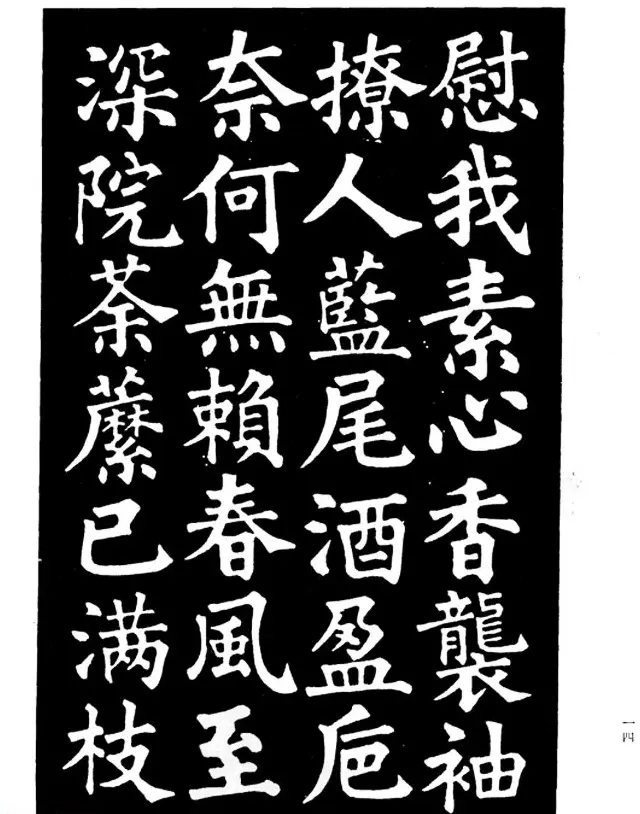 慰我素心香襲袖
撩人藍尾酒盈巵
奈何無賴春風至
深院荼蘼已满枝
一四